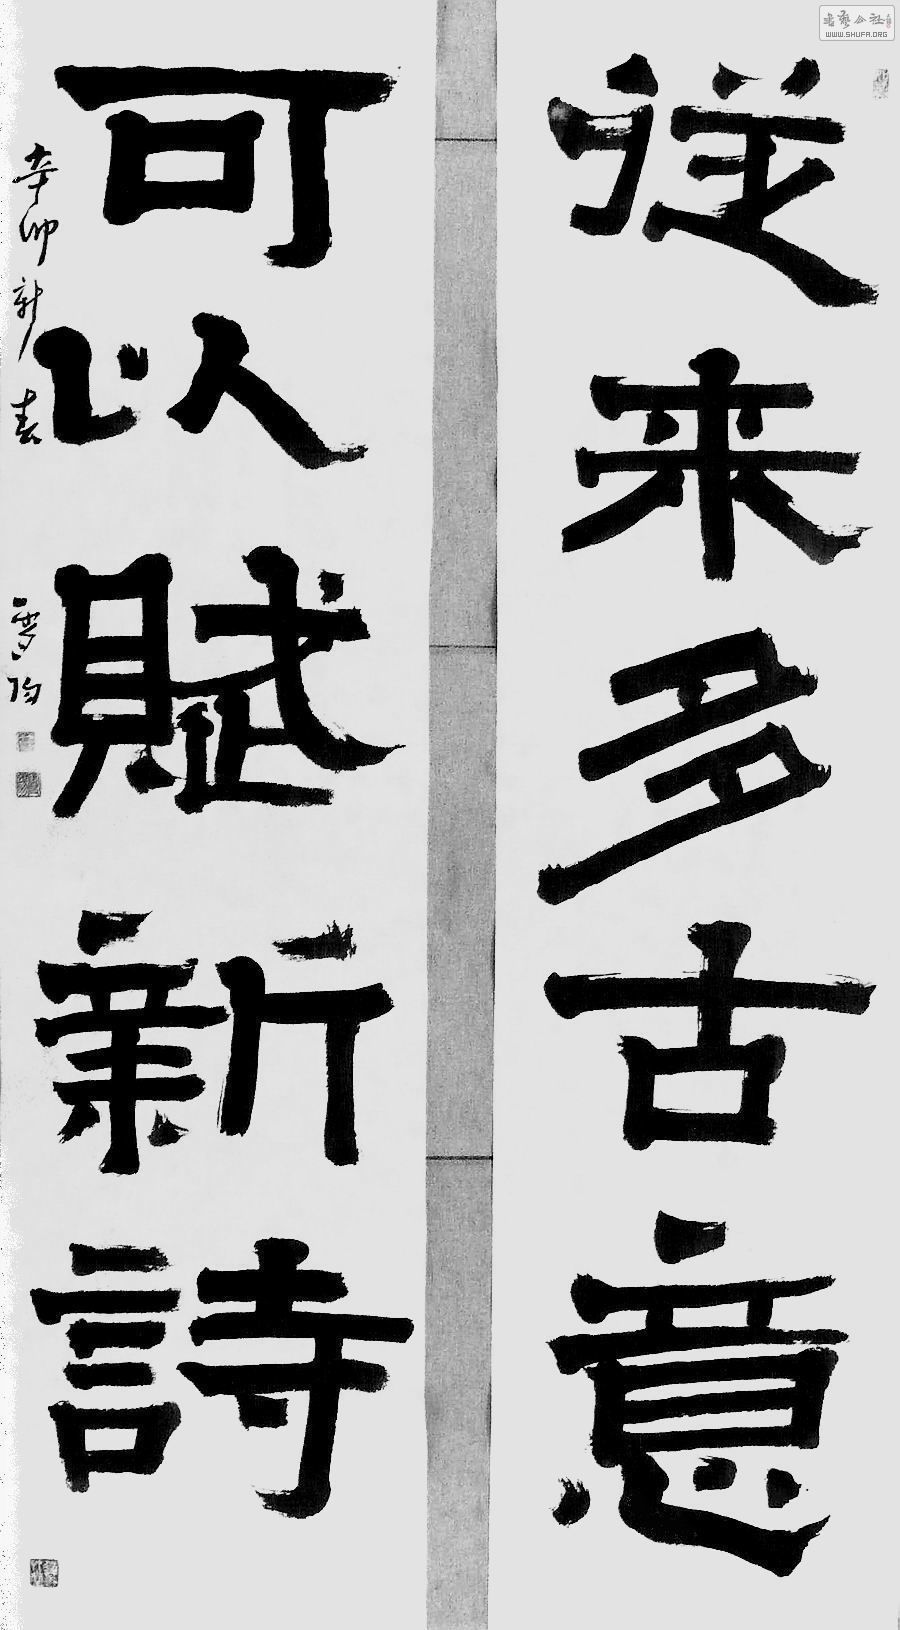 從来多古意
可以賦新詩
辛卯新春
書艺公社
WWW.SHUFA.ORG